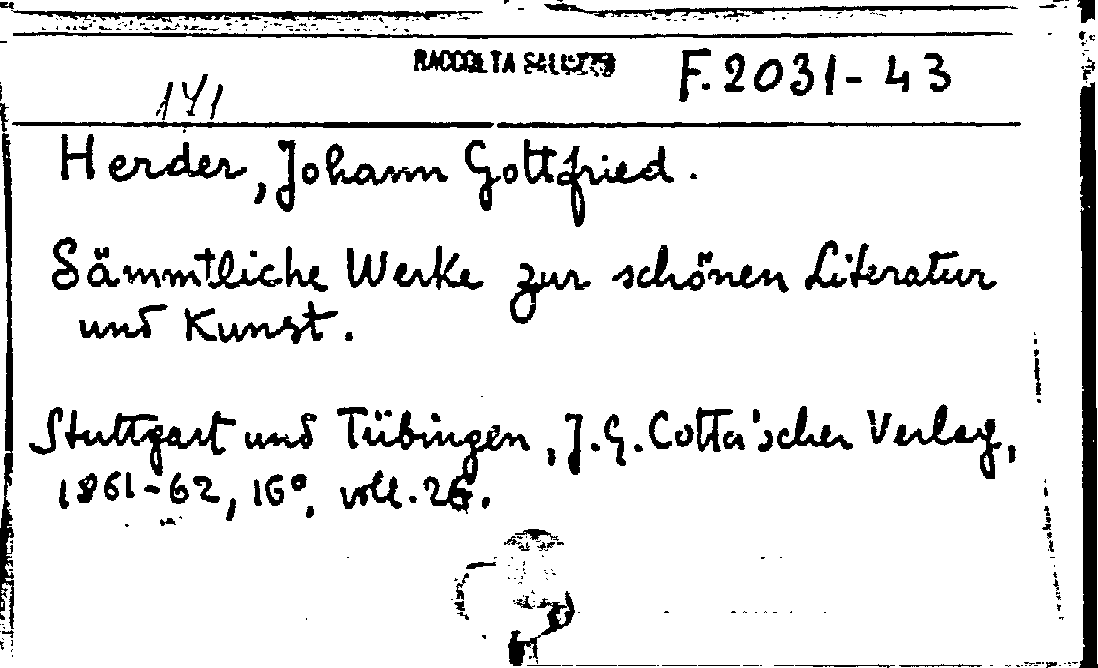 RACCOLTA SALUZZO F. 2031-43
141
Herder, Johann Gottfried.
Sämmtliche Werke zur schönen Literatur
und Kunst.
Stuttgart und Tübingen, J. G. Cotta'scher Verlag,
1861-62, 16°, voll. 26.